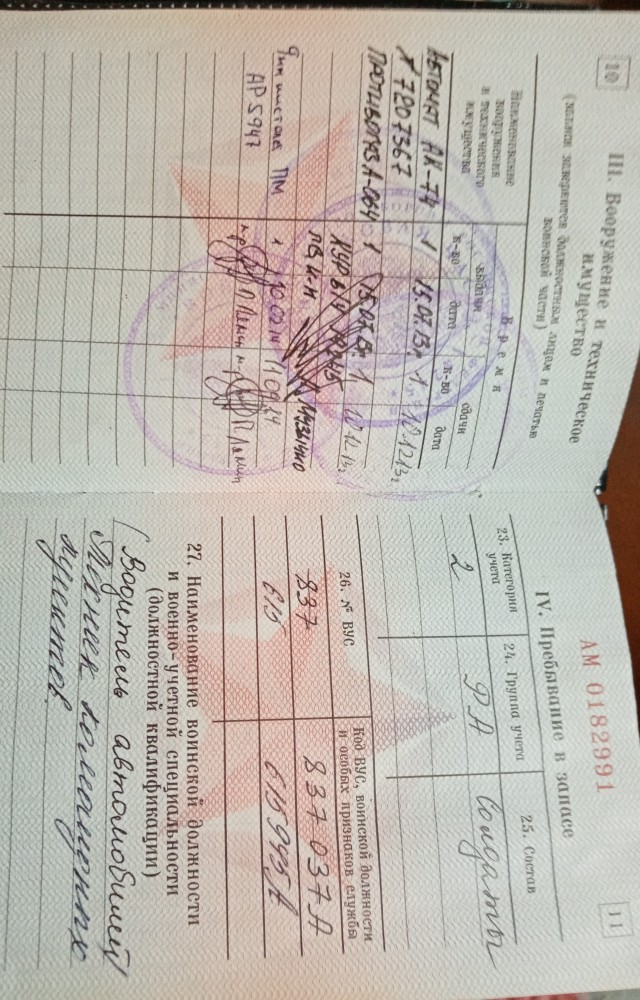 10
III. Вооружение и техническое
имущество
(записи заверяются должностным лицом и печатью
воинской части)
Наименование
вооружения
и технического
имущества
Время
выдачи
сдачи
к-во
дата
к-во
дата
Автомат АК-74 1 15.07.13г 1 10.12.13г
7207367
противогаз 1 15.07.13г. 1 10.12.13г
л-н
9мм пистолет ПМ 1
АР 5947
АМ 0182991
11
IV. Пребывание в запасе
23. Категория
учета
24. Группа учета
25. Состав
2
РА
Солдаты
26. № ВУС
Код ВУС, воинской должности
и особых признаков службы
837
837 037А
615
615 945А
27. Наименование воинской должности
и военно-учетной специальности
(должностной квалификации)
Водитель автомобилей
Техник командных
пунктов